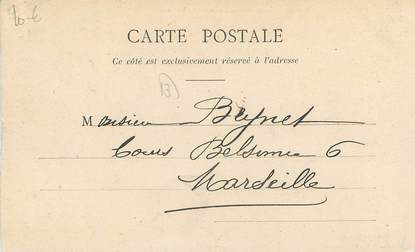 10-€
CARTE POSTALE
Ce côté est exclusivement réservé à l'adresse
B
Monsieur Beynet
Cours Belsunce 6
Marseille